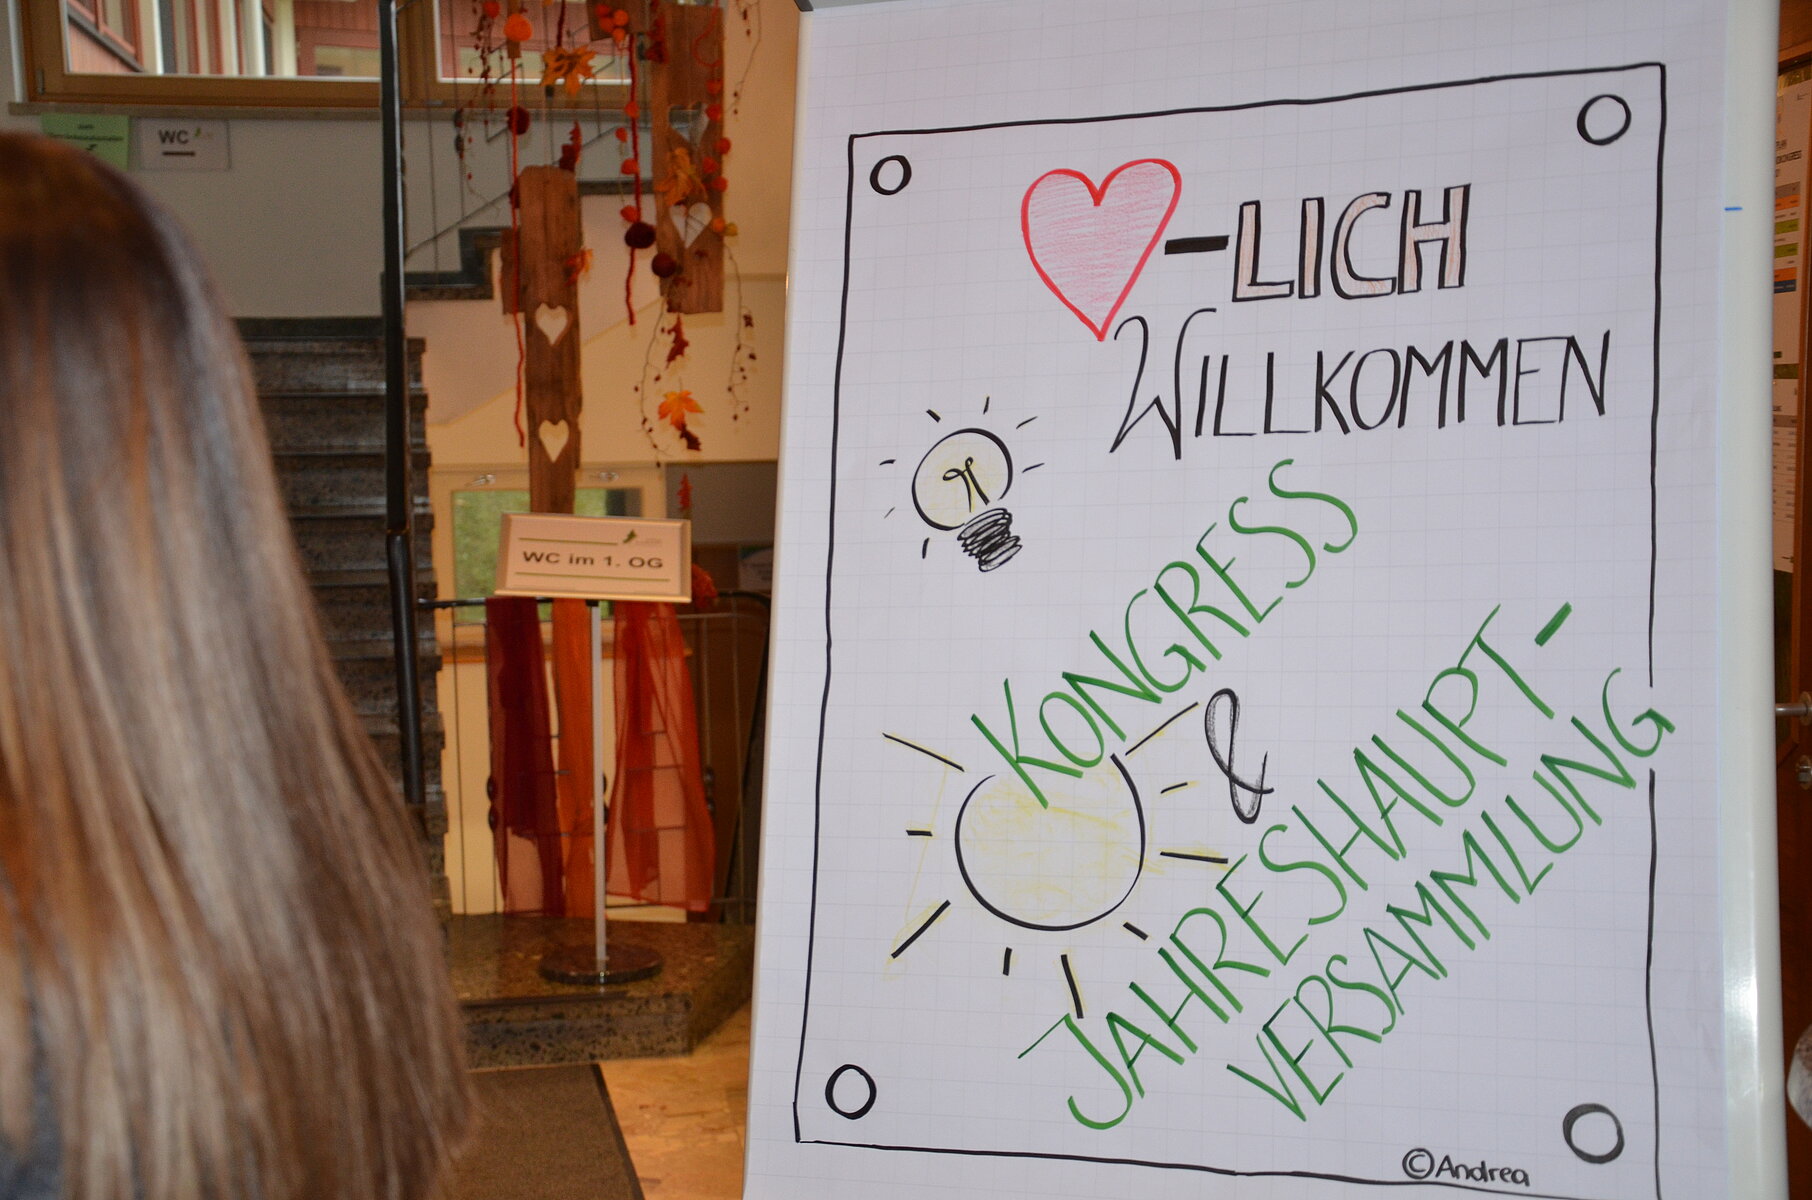 WC
WC im 1. OG
-LICH
WILLKOMMEN
KONGRESS
&
JAHRESHAUPT-
VERSAMMLUNG
©Andrea